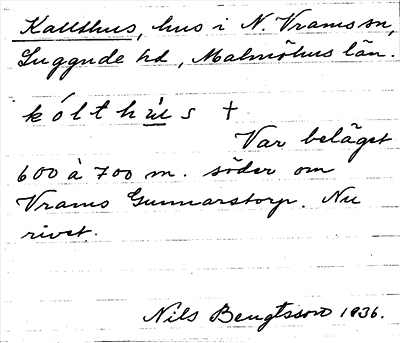 Kallthus, hus i N. Vrams sn,
Luggude hd, Malmöhus län.
kólthù̲s †
Var beläget
600 à 700 m. söder om
Vrams Gunnarstorp. Nu
rivet.
Nils Bengtsson 1936.